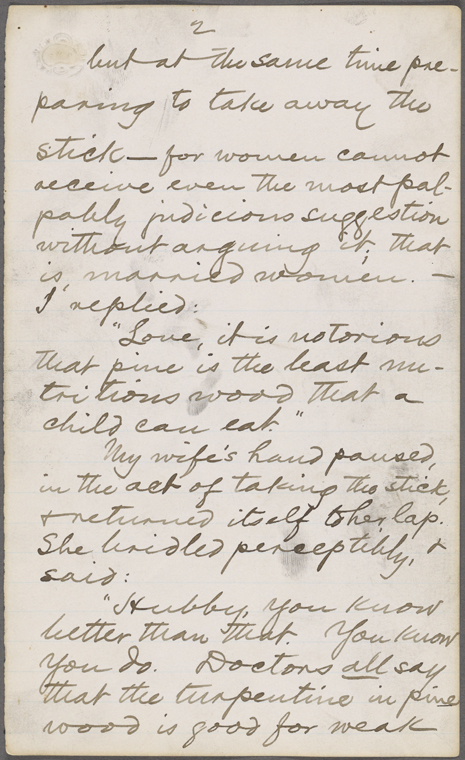 2
but at the same time pre-
paring to take away the
stick — for women cannot
receive even the most pal-
pably judicious suggestion
without arguing it; that
is married women. —
I replied:
"Love, it is notorious
that pine is the least nu-
tritious wood that a
child can eat."
My wife's hand paused,
in the act of taking the stick,
& returned itself to her lap.
She bridled perceptibly, &
said:
"Hubby, you know
better than that. You know
you do. Doctors all say
that the turpentine in pine
wood is good for weak